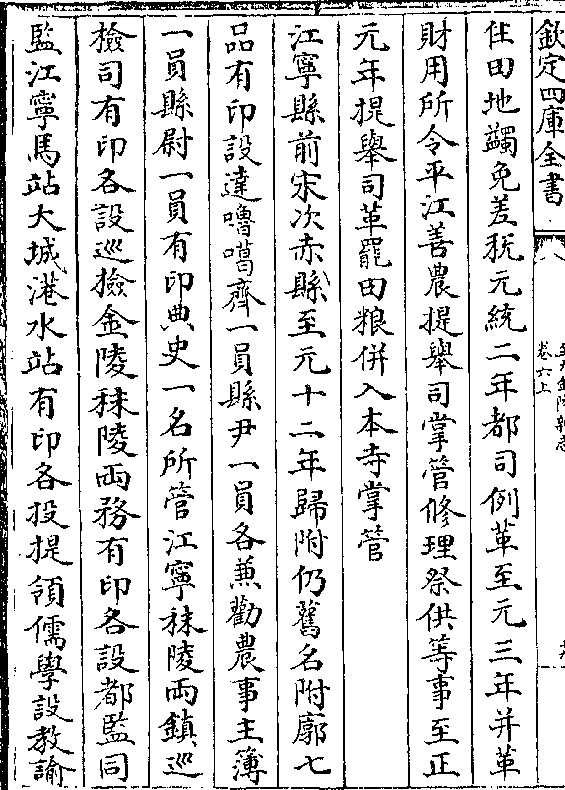 欽定四庫全書
卷六上
住田地蠲免差稅元統二年都司例革至元三年并革
財用所令平江善農提舉司掌管修理祭供等事至正
元年提舉司革罷田粮併入本寺掌管
江寧縣前宋次赤縣至元十二年歸附仍舊名附廓七
品有印設達嚕噶齊一員縣尹一員各兼勸農事主簿
一員縣尉一員有印典史一名所管江寧秣陵兩鎮巡
檢司有印各設巡檢金陵秣陵兩務有印各設都監同
監江寧馬站大城港水站有印各投提領儒學設教諭